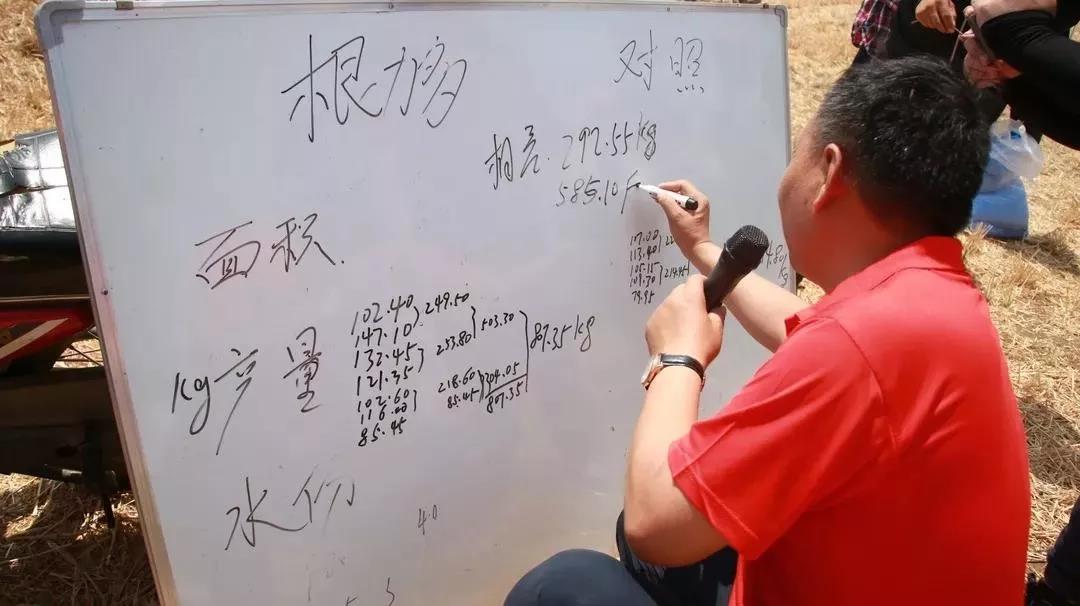 根力多 对照
相差. 292.55kg
585.10
面积.
107.00
113.40
105.15
109.30 214.45
79.95
4.80
kg
kg产量
102.40 249.50
147.10
132.45 253.80 503.30
121.35
102.60 218.60 304.05
116.00 85.45 807.35
85.45
807.35kg
水份
40